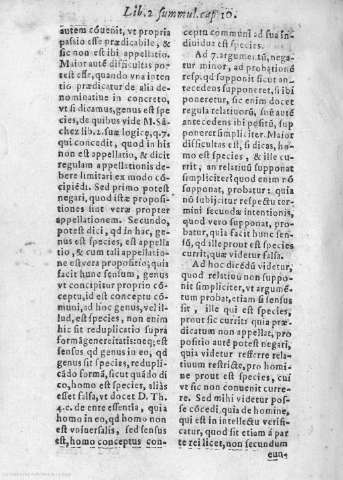 Lib. 2 summul. cap 10.
autem cōuenit, vt propria
passio esse prædicabile, &
sic non est ibi appellatio.
Maior autē difficultas po-
test esse, quando vna inten
tio prædicatur de alia de-
nominatiue in concreto,
vt si dicamus, genus est spe
cies, de quibus vide M. Sā-
chez lib. 2. suæ logicę, q. 7.
qui concedit, quod in his
non est appellatio, & dicit
regulam appellationis de-
bere limitari ex modo cō-
cipiēdi. Sed primo potest
negari, quod istæ proposi-
tiones sint veræ propter
appellationem. Secundo,
potest dici, qd in hac, ge-
nus est species, est appella
tio, & cum tali appellatio-
ne est vera propositio; quia
facit hunc sensum, genus
vt concipitur proprio cō-
ceptu, id est conceptu cō-
muni, ad hoc genus, vel il-
lud, est species, non enim
hic sit reduplicatio supra
formā genereitatis: neq; est
sensus qd genus in eo, qd
genus sit species, redupli-
cādo formā, sicut quādo di
co, homo est species, aliàs
esset falsa, vt docet D. Th.
4. c. de ente essentia, quia
homo in eo, qd homo non
est vniuersalis, sed sensus
est, homo conceptus con-
ceptu communi ad sua in-
diuidua est species.
Ad 7. argumētū, nega-
tur minor, ad probationē
resp. qd supponit sicut an-
tecedens supponeret, si ibi
poneretur, sic enim docet
regula relatiuorū, sine autē
antecedens ibi positū, sup
poneret simpliciter. Maior
difficultas est, si dicas, ho-
mo est species, & ille cu-
rrit, an relatiuū supponat
simpliciter? quod enim nō
supponat, probatur; quia
nō subijcitur respectu ter-
mini secundæ intentionis,
quod vero supponat, pro-
batur, quia facit hunc sen-
sū, qd ille prout est species
currit, quæ videtur falsa.
Ad hoc dicēdū videtur,
quod relatiuū non suppo-
nit simpliciter, vt argumē-
tum probat, etiam si sensus
sit, ille qui est species,
prout sic currit: quia præ-
dicatum non appellat, pro
positio autē potest negari,
quia videtur referre rela-
tiuum restricte, pro homi-
ne prout est species, cui
vt sic non conuenit curre-
re. Sed mihi videtur pos-
se cōcedi, quia de homine,
qui est in intellectu verifi-
catur, quod sit etiam à par
te rei licet, non secundum
eun-